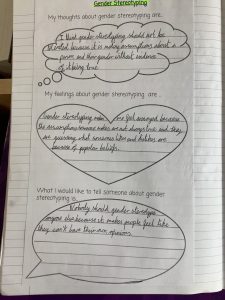 Gender Stereotyping
My thoughts about gender stereotyping are..
I think gender stereotyping should not be
because it is making assumptions about a
person and their gender without evidence
of it being true.
My feelings about gender stereotyping are ...
Gender stereotyping makes me feel annoyed because
the assumptions someone makes are not always true and they
are guessing what someones likes and hobbies are
because of popular beliefs.
What I would like to tell someone about gender
stereotyping is..
Nobody should gender stereotype
anyone else because it makes people feel like
they can't have their own opinions.